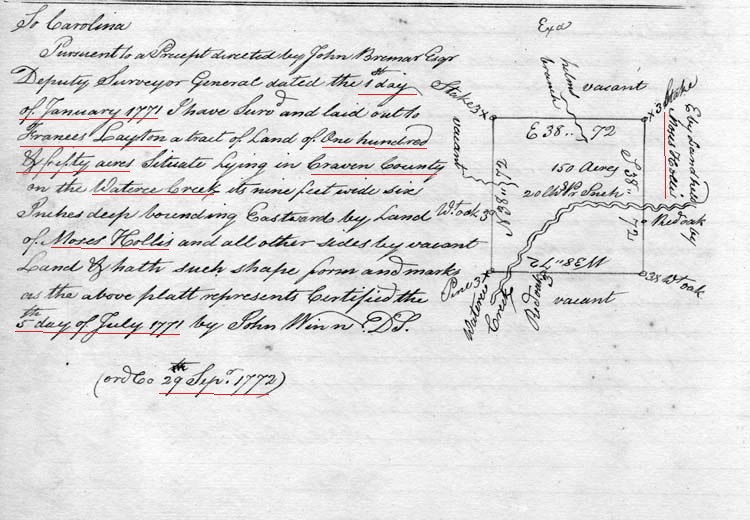 So Carolina
Pursuant to a Precept directed by John Bremar Esqr
Deputy Surveyor General dated the 1st day
of January 1771 I have Survd and laid out to
Frances Layton a tract of Land of One hundred
& fifty acres Situate Lying in Craven County
on the Wateree Creek its nine feet wide six
Inches deep bounding Eastward by Land
of Moses Hollis and all other sides by vacant
Land & hath such shape form and marks
as the above platt represents Certified the
5th day of July 1771 by John Winn D.S.
(ord Co 29th Sepr. 1772)
Exd
branch
vacant
Stake 3x
x3 Stake
E 38.. 72
vacant
150 Acres
20 Chs Pr Inch
S 38.. 72
N 38.. 72
Moses Hollis
Wt oak 3
Red oak
W 38.. 72
Pine 3x
38 Wt oak
Wateree
Creek
Red
vacant